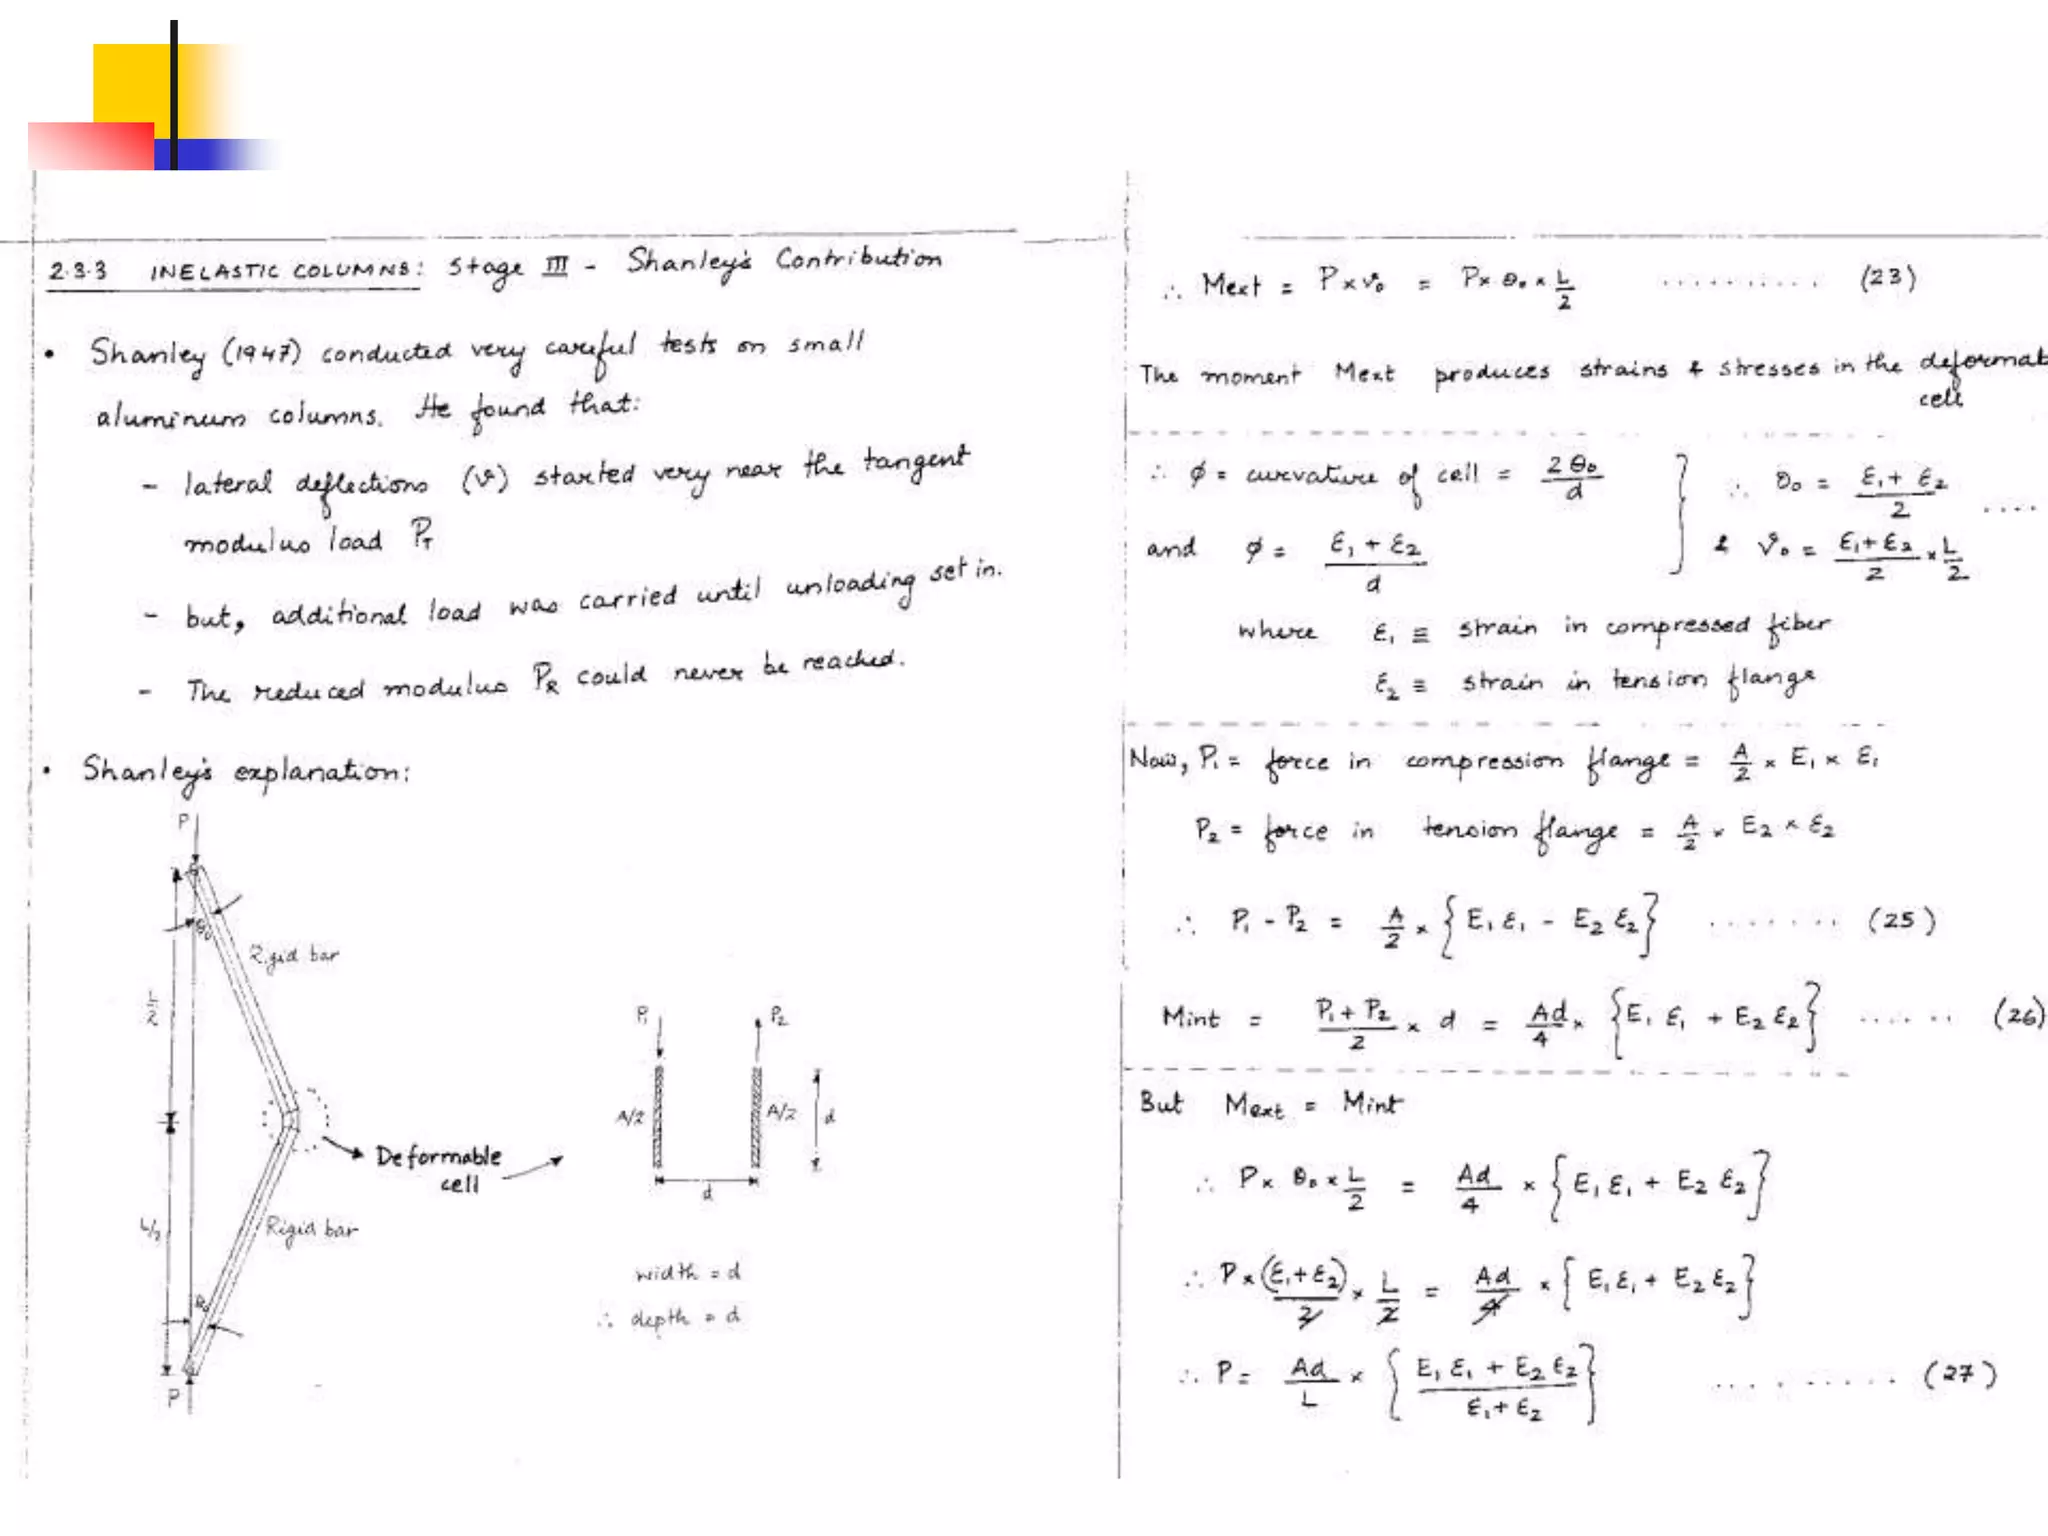 2.3.3 INELASTIC COLUMNS: Stage III - Shanley's Contribution
• Shanley (1947) conducted very careful tests on small
aluminum columns. He found that:
- lateral deflections (v) started very near the tangent
modulus load P_T
- but, additional load was carried until unloading set in.
- The reduced modulus P_R could never be reached.
• Shanley's explanation:
P
θ₀
Rigid bar
L/2
P₁ P₂
A/2 A/2 d
Deformable
cell
d
L/2
Rigid bar
width = d
∴ depth = d
θ₀
P
∴ Mext = P × v₀ = P × θ₀ × L/2 .......... (23)
The moment Mext produces strains & stresses in the deformab
cell
∴ φ = curvature of cell = 2θ₀/d } ∴ θ₀ = (ε₁ + ε₂)/2 ....
and φ = (ε₁ + ε₂)/d & v₀ = (ε₁ + ε₂)/2 × L/2
where ε₁ ≡ strain in compressed fiber
ε₂ ≡ strain in tension flange
Now, P₁ = force in compression flange = A/2 × E₁ × ε₁
P₂ = force in tension flange = A/2 × E₂ × ε₂
∴ P₁ - P₂ = A/2 × {E₁ε₁ - E₂ε₂} ....... (25)
Mint = (P₁ + P₂)/2 × d = Ad/4 × {E₁ε₁ + E₂ε₂} ...... (26)
But Mext = Mint
∴ P × θ₀ × L/2 = Ad/4 × {E₁ε₁ + E₂ε₂}
∴ P × (ε₁+ε₂)/2 × L/2 = Ad/4 × {E₁ε₁ + E₂ε₂}
∴ P = Ad/L × {(E₁ε₁ + E₂ε₂)/(ε₁+ε₂)} ......... (27)